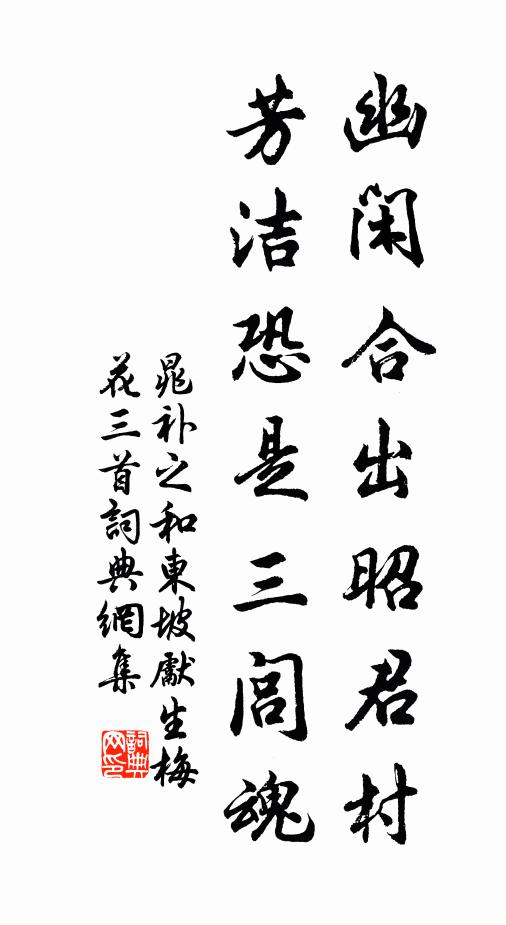 幽闲合出昭君村
芳洁恐是三闾魂
晁补之和東坡獻生梅
花三首詞典網集
詞典網印